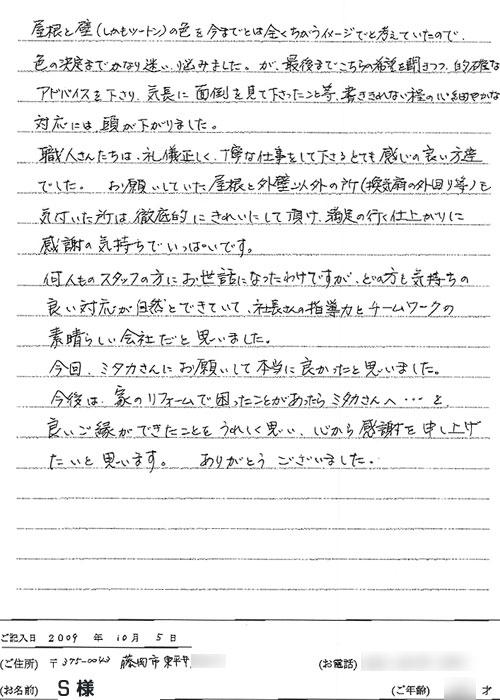 屋根と壁(しかもツートン)の色を今までとは全くちがうイメージでと考えていたので、
色の決定までかなり迷い、悩みました。が、最後までこちらの希望を聞きつつ、的確な
アドバイスを下さり、気長に面倒を見て下さったこと等、書ききれない程の心細やかな
対応には、頭が下がりました。
職人さんたちは、礼儀正しく、丁寧な仕事をして下さるとても感じの良い方達
でした。 お願いしていた屋根と外壁以外の所(換気扇の外回り等)も
気付いた所は徹底的にきれいにして頂け、満足の行く仕上がりに
感謝の気持ちでいっぱいです。
何人ものスタッフの方にお世話になったわけですが、どの方も気持ちの
良い対応が自然とできていて、社長さんの指導力とチームワークの
素晴らしい会社だと思いました。
今回、ミタカさんにお願いして本当に良かったと思いました。
今後は、家のリフォームで困ったことがあったらミタカさんへ…と、
良いご縁ができたことをうれしく思い、心から感謝を申し上げ
たいと思います。 ありがとうございました。
ご記入日 2009 年 10月 5日
(ご住所) 〒375-0043 藤岡市東平井
(お電話)
(お名前) S 様
(ご年齢) 才